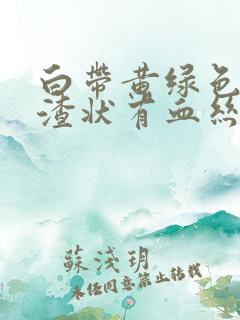 白帶黄绿色
渣状有血絲
蘇淺玥
未经同意禁止转载